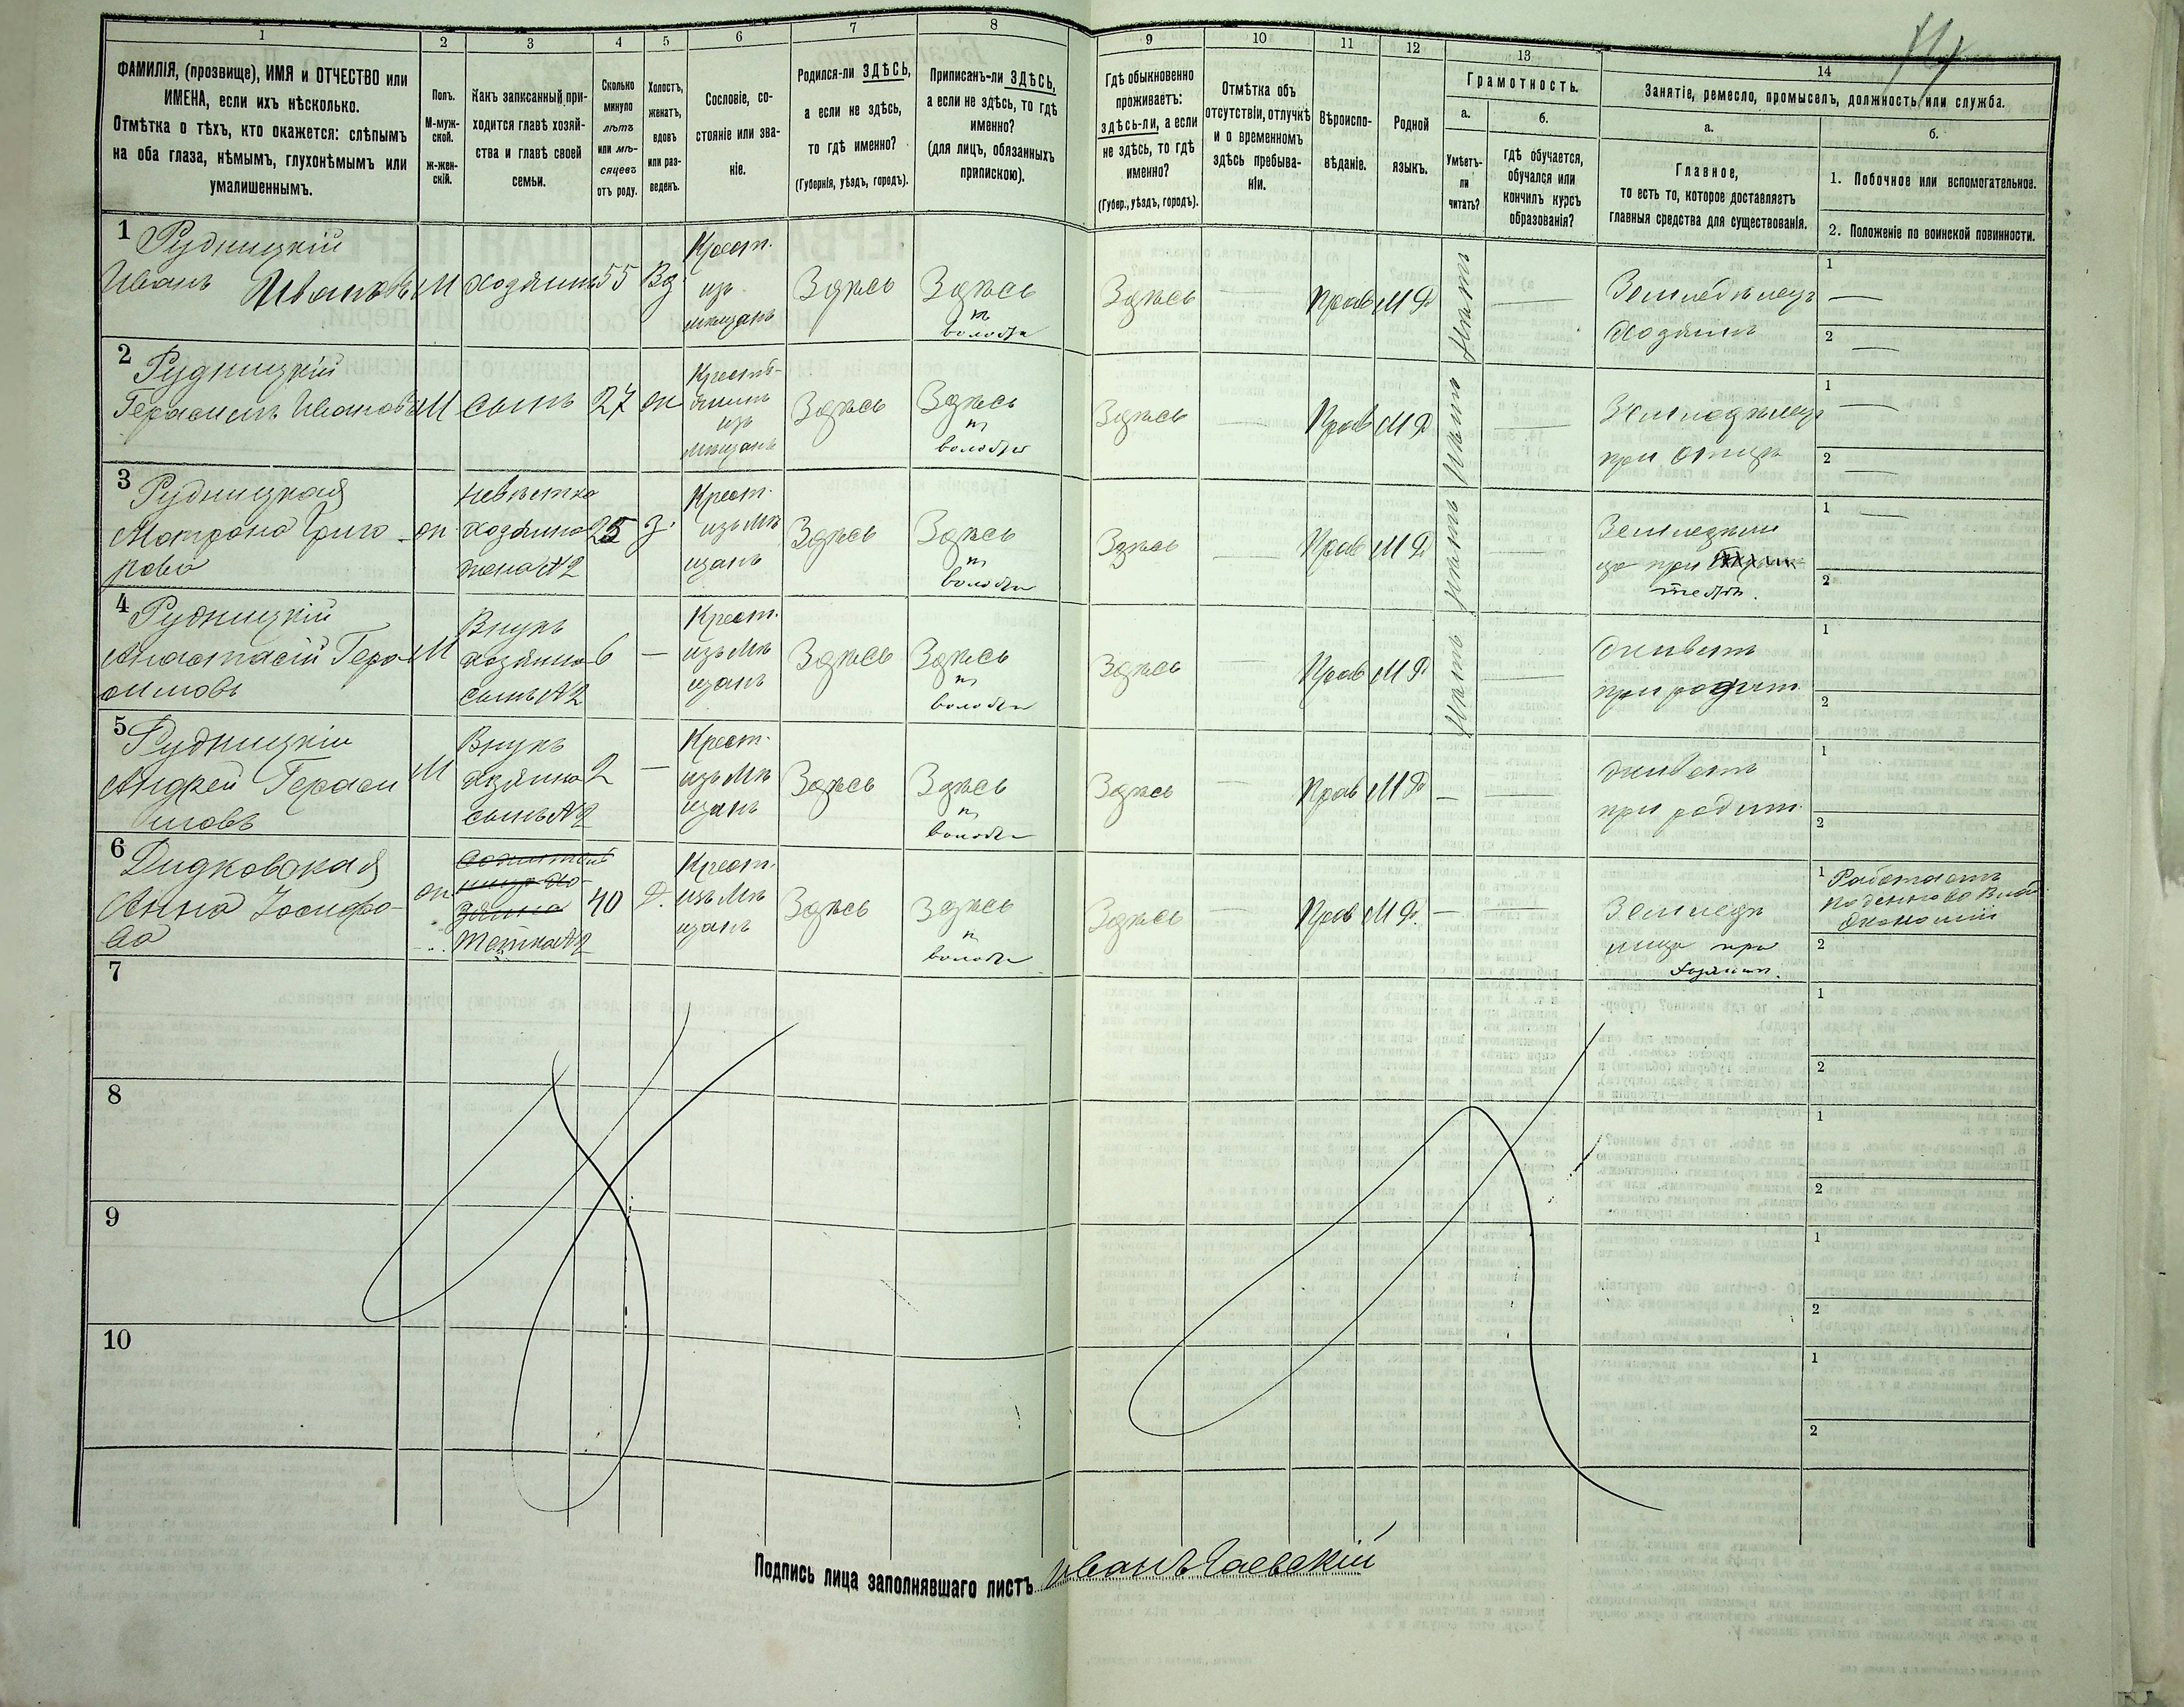 1 2 3 4 5 6 7 8 9 10 11 12 13 14
ФАМИЛІЯ, (прозвище), ИМЯ и ОТЧЕСТВО или
ИМЕНА, если ихъ нѣсколько.
Отмѣтка о тѣхъ, кто окажется: слѣпымъ
на оба глаза, нѣмымъ, глухонѣмымъ или
умалишеннымъ.
Полъ.
М-муж-
ской.
ж-жен-
скій.
Какъ записанный при-
ходится главѣ хозяй-
ства и главѣ своей
семьи.
Сколько
минуло
лѣтъ
или мѣ-
сяцевъ
отъ роду.
Холостъ,
женатъ,
вдовъ
или раз-
веденъ.
Сословіе, со-
стояніе или зва-
ніе.
Родился-ли ЗДѢСЬ,
а если не здѣсь,
то гдѣ именно?
(Губернія, уѣздъ, городъ).
Приписанъ-ли ЗДѢСЬ,
а если не здѣсь, то гдѣ
именно?
(для лицъ, обязанныхъ
припискою).
Гдѣ обыкновенно
проживаетъ:
здѣсь-ли, а если
не здѣсь, то гдѣ
именно?
(Губер., уѣздъ, городъ).
Отмѣтка объ
отсутствіи, отлучкѣ
и о временномъ
здѣсь пребыва-
ніи.
Вѣроиспо-
вѣданіе.
Родной
языкъ.
Грамотность.
а.
Умѣетъ-
ли
читать?
б.
гдѣ обучается,
обучался или
кончилъ курсъ
образованія?
Занятіе, ремесло, промыселъ, должность или служба.
а.
Главное,
то есть то, которое доставляетъ
главныя средства для существованія.
б.
1. Побочное или вспомогательное.
2. Положеніе по воинской повинности.
1 Рудницкій
Иванъ Ивановъ
М
хозяинъ
55
Вд.
Крест.
изъ
мѣщанъ
Здѣсь
Здѣсь
волости
Здѣсь
—
Прав
М Р
Нѣтъ
—
Земледѣлецъ
хозяинъ
1 —
2 —
2 Рудницкій
Герасимъ Ивановъ
М
сынъ
27
ж
Кресть-
янинъ
изъ
мѣщанъ
Здѣсь
Здѣсь
волости
Здѣсь
—
Прав
М Р
Нѣтъ
—
Земледѣлецъ
при отцѣ
1 —
2 —
3 Рудницкая
Матрона Григо
рова
ж
невѣстка
хозяина
жена №2
25
з.
Крест.
изъ Мѣ
щанъ
Здѣсь
Здѣсь
волости
Здѣсь
—
Прав
М Р
Нѣтъ
—
ца при
1 —
2
4 Рудницкій
Анастасій Гера
симовъ
М
Внукъ
хозяина
сынъ №2
6
—
Крест.
изъ Мѣ
щанъ
Здѣсь
Здѣсь
волости
Здѣсь
—
Прав
М Р
Нѣтъ
—
живетъ
при родит.
1
2
5 Рудницкій
Андрей Гераси
мовъ
М
Внукъ
хозяина
сынъ №2
2
—
Крест.
изъ Мѣ
щанъ
Здѣсь
Здѣсь
волости
Здѣсь
—
Прав
М Р
—
—
живетъ
при родит.
1
2
6 Дидковская
Анна Іосифо-
ва
ж
зяина
Тётка №2
40
Д.
Крест.
изъ Мѣ
щанъ
Здѣсь
Здѣсь
волости
Здѣсь
—
Прав
М Р.
—
—
при
хозяин.
1 Работаетъ
экономіи
2
7
1
2
8
1
2
9
1
2
10
1
2
Подпись лица заполнявшаго листъ Иванъ Гаевскій